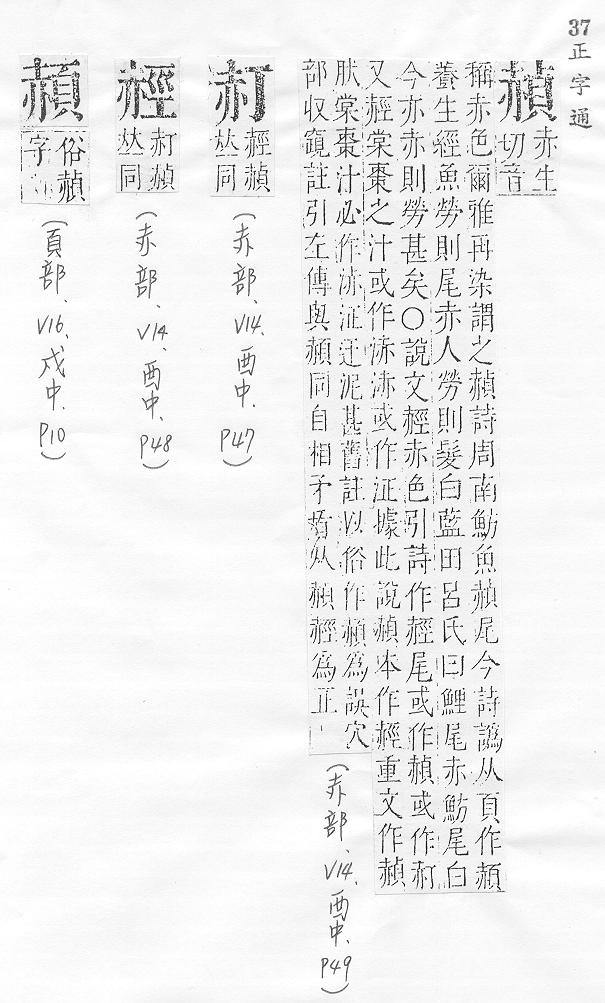 37
正字通
赬
赤生
切音
稱赤色爾雅再染謂之赬詩周南魴魚赬尾今詩譌从頁作頳
養生經魚勞則尾赤人勞則髮白藍田呂氏曰鯉尾赤魴尾白
今亦赤則勞甚矣〇說文經赤色引詩作䞓尾或作赬或作𧹛
又䞓棠棗之汁或作浾浾或作泟據此說赬本作䞓重文作赬
棠棗汁必作浾泟迂泥甚舊註以俗作頳為誤穴
部収竀註引左傳與頳同自相矛盾从頳䞓為正
(赤部、V14、酉中、P49)
𧹛
䞓赬
𠀤同
(赤部、V14、酉中、P47)
䞓
𧹛赬
𠀤同
(赤部、V14、酉中、P48)
頳
俗赬
字
(頁部、V16、戌中、P10)